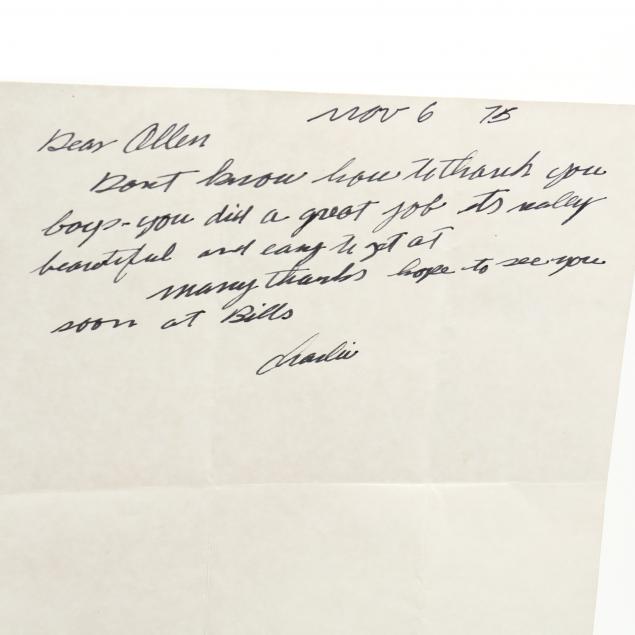 Nov 6 75
Dear Allen
Dont know how to thank you
boys - you did a great job its really
beautiful and easy to get at
many thanks hope to see you
soon at Bills
Charlie